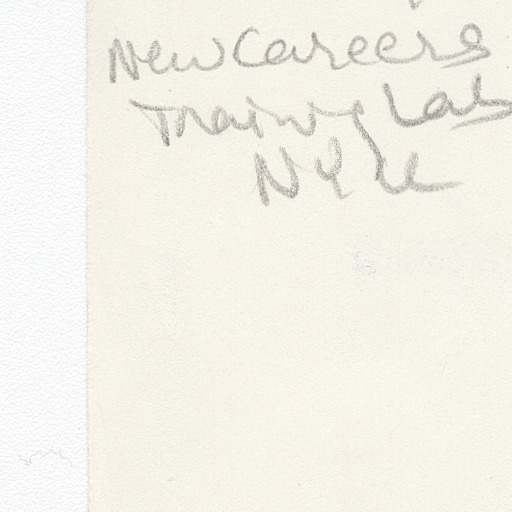 New Careers
Training Lab
NYU